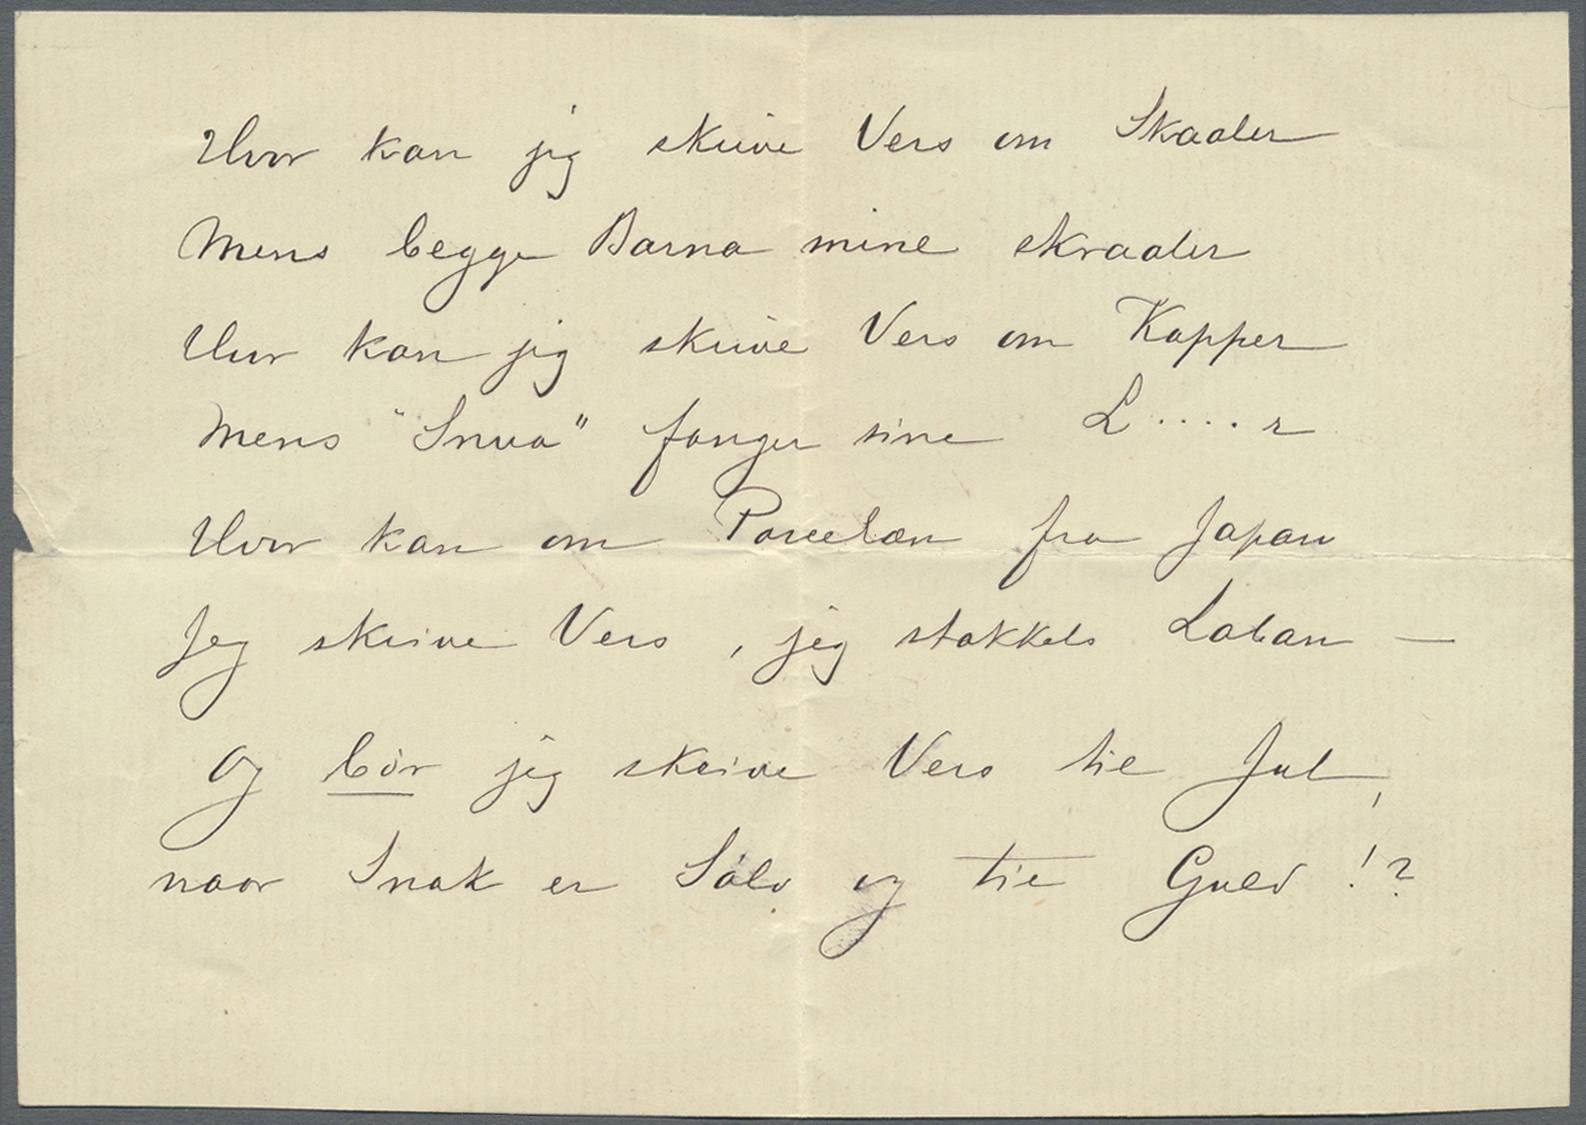 Hvor kan jeg skrive Vers om Skaaler
Mens begge Barna mine skraaler
Hvor kan jeg skrive Vers om Kopper
Mens "Snua" fanger sine L....r
Hvor kan om Porcelæn fra Japan
Jeg skrive Vers, jeg stakkels Laban —
Og bör jeg skrive Vers til Jul,
naar Snak er Sölv og tie Guld!?